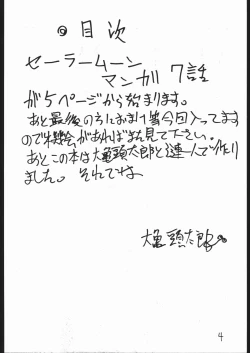 ◎目次
セーラームーン
マンガ 7話
が5ページから始まります。
あと最後のうにおまけ等今回入ってます
ので機会があればまた見て下さい。
あとこの本は大亀頭太郎と
ました。それでは
大亀頭太郎
4